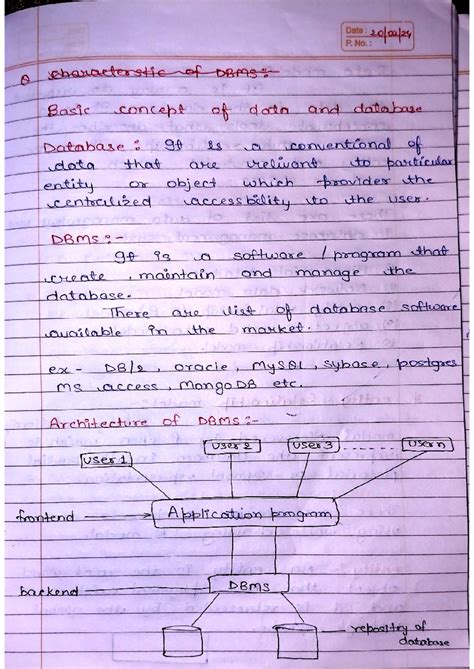 Date: 20/02/24
P. No.:
Q characterstic of DBMS:-
Basic concept of data and database
Database: It is a conventional of
data that are relivant to particular
entity or object which provider the
centralized accessbility to the user.
DBMS:-
It is a software / program that
create, maintain and manage the
database.
There are list of database software
available in the market.
ex - DB/2, oracle, MySQL, sybase, postgres
MS access, MangoDB etc.
Architecture of DBMS:-
User 1 User 2 User 3 User n
frontend Application program
backend DBMS
repositry of
database